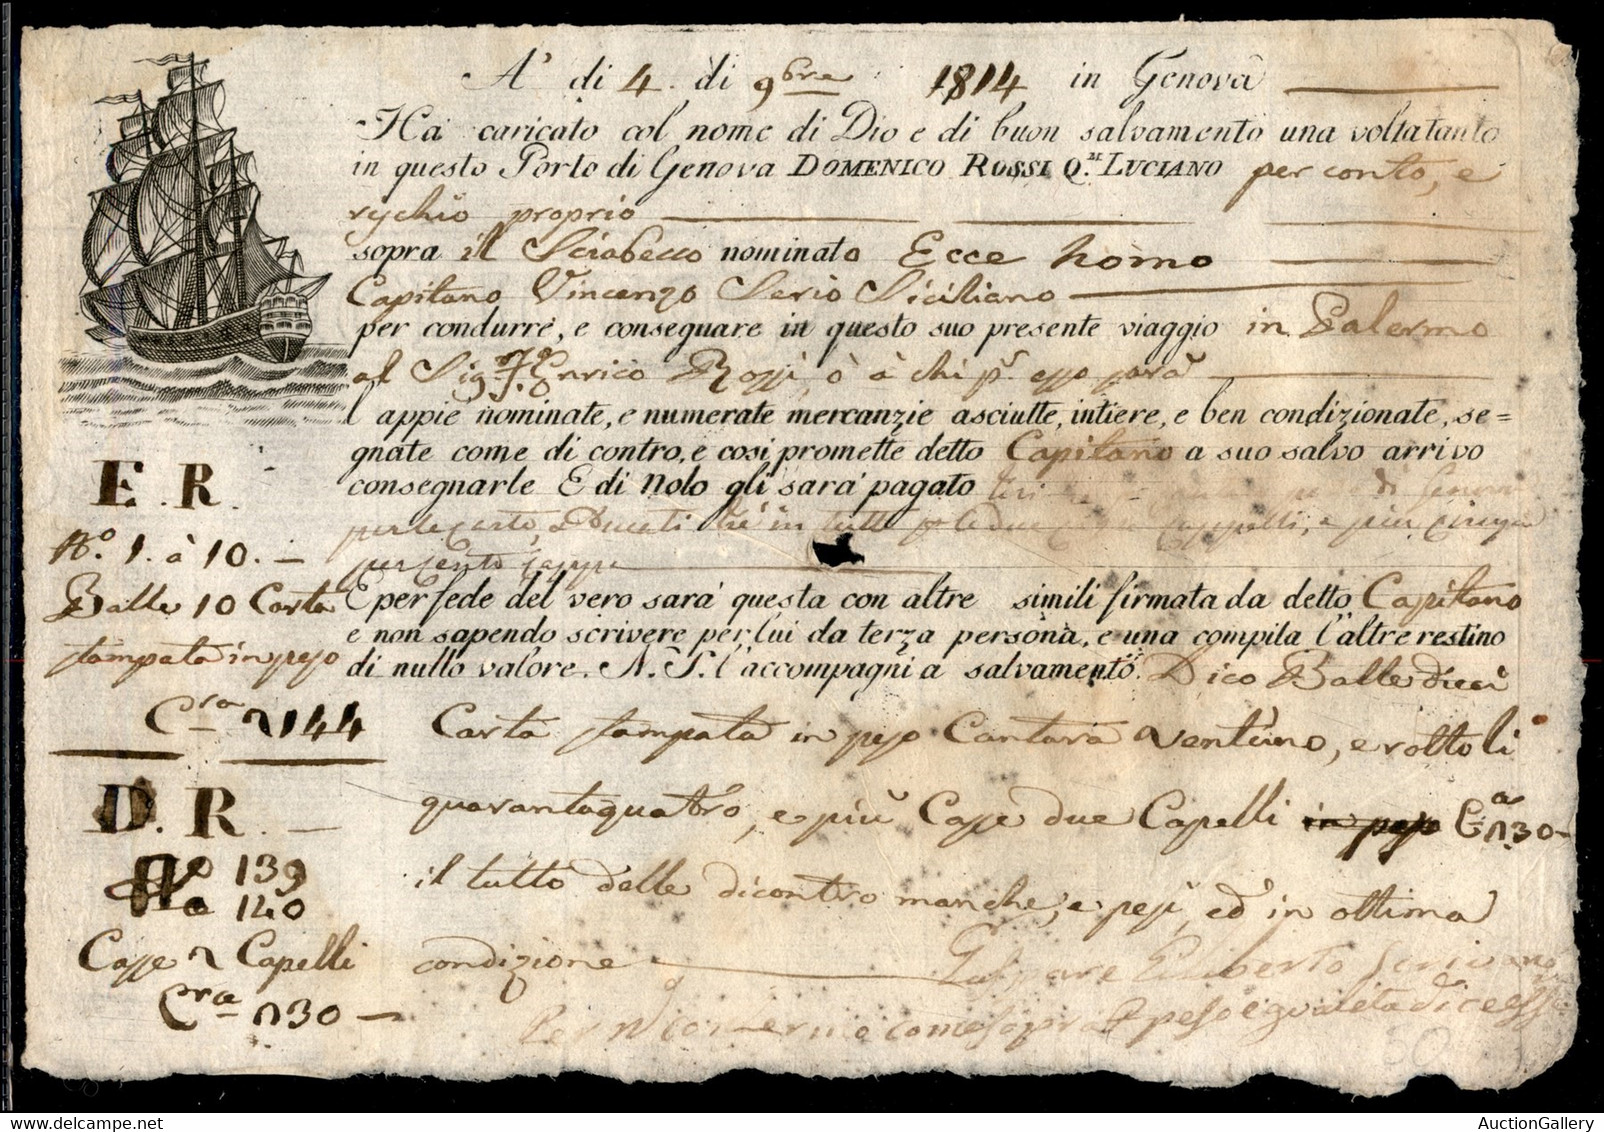 A' di 4. di 9bre 1814 in Genova
Ha caricato col nome di Dio e di buon salvamento una volta tanto
in questo Porto di Genova DOMENICO ROSSI Q.M LUCIANO per conto, e
rychio proprio
sopra il Sciabecco nominato Ecce homo
Capitano Vincenzo Serio Siciliano
per condurre, e conseguare in questo suo presente viaggio in Palermo
al Sig.r Enrico Rossi, ò à chi p. esso sarà
l appie nominate, e numerate mercanzie asciutte, intiere, e ben condizionate, se=
gnate come di contro, e cosi promette detto Capitano a suo salvo arrivo
consegnarle E di nolo gli sara' pagato di
per in tutto due Cappelli, e più cinque
per cento cappa
E per fede del vero sara' questa con altre simili firmata da detto Capitano
e non sapendo scrivere per lui da terza persona, e una compita l'altre restino
di nullo valore. N. S. l'accompagni a salvamento. Dico Balle dieci
Carta stampata in peso Cantara ventuno, e rottoli
quarantaquattro, e più Casse due Capelli in peso C.a n30-
il tutto delle dicontro marche, e pesi, ed in ottima
condizione Scrivano
come sopra peso e qualeta di cesse
E. R.
No. 1. à 10. -
Balle 10 Carta
stampata in peso
Cra 2144
D. R. -
No 139
a 140
Casse 2 Capelli
Cra n30 -
AuctionGallery